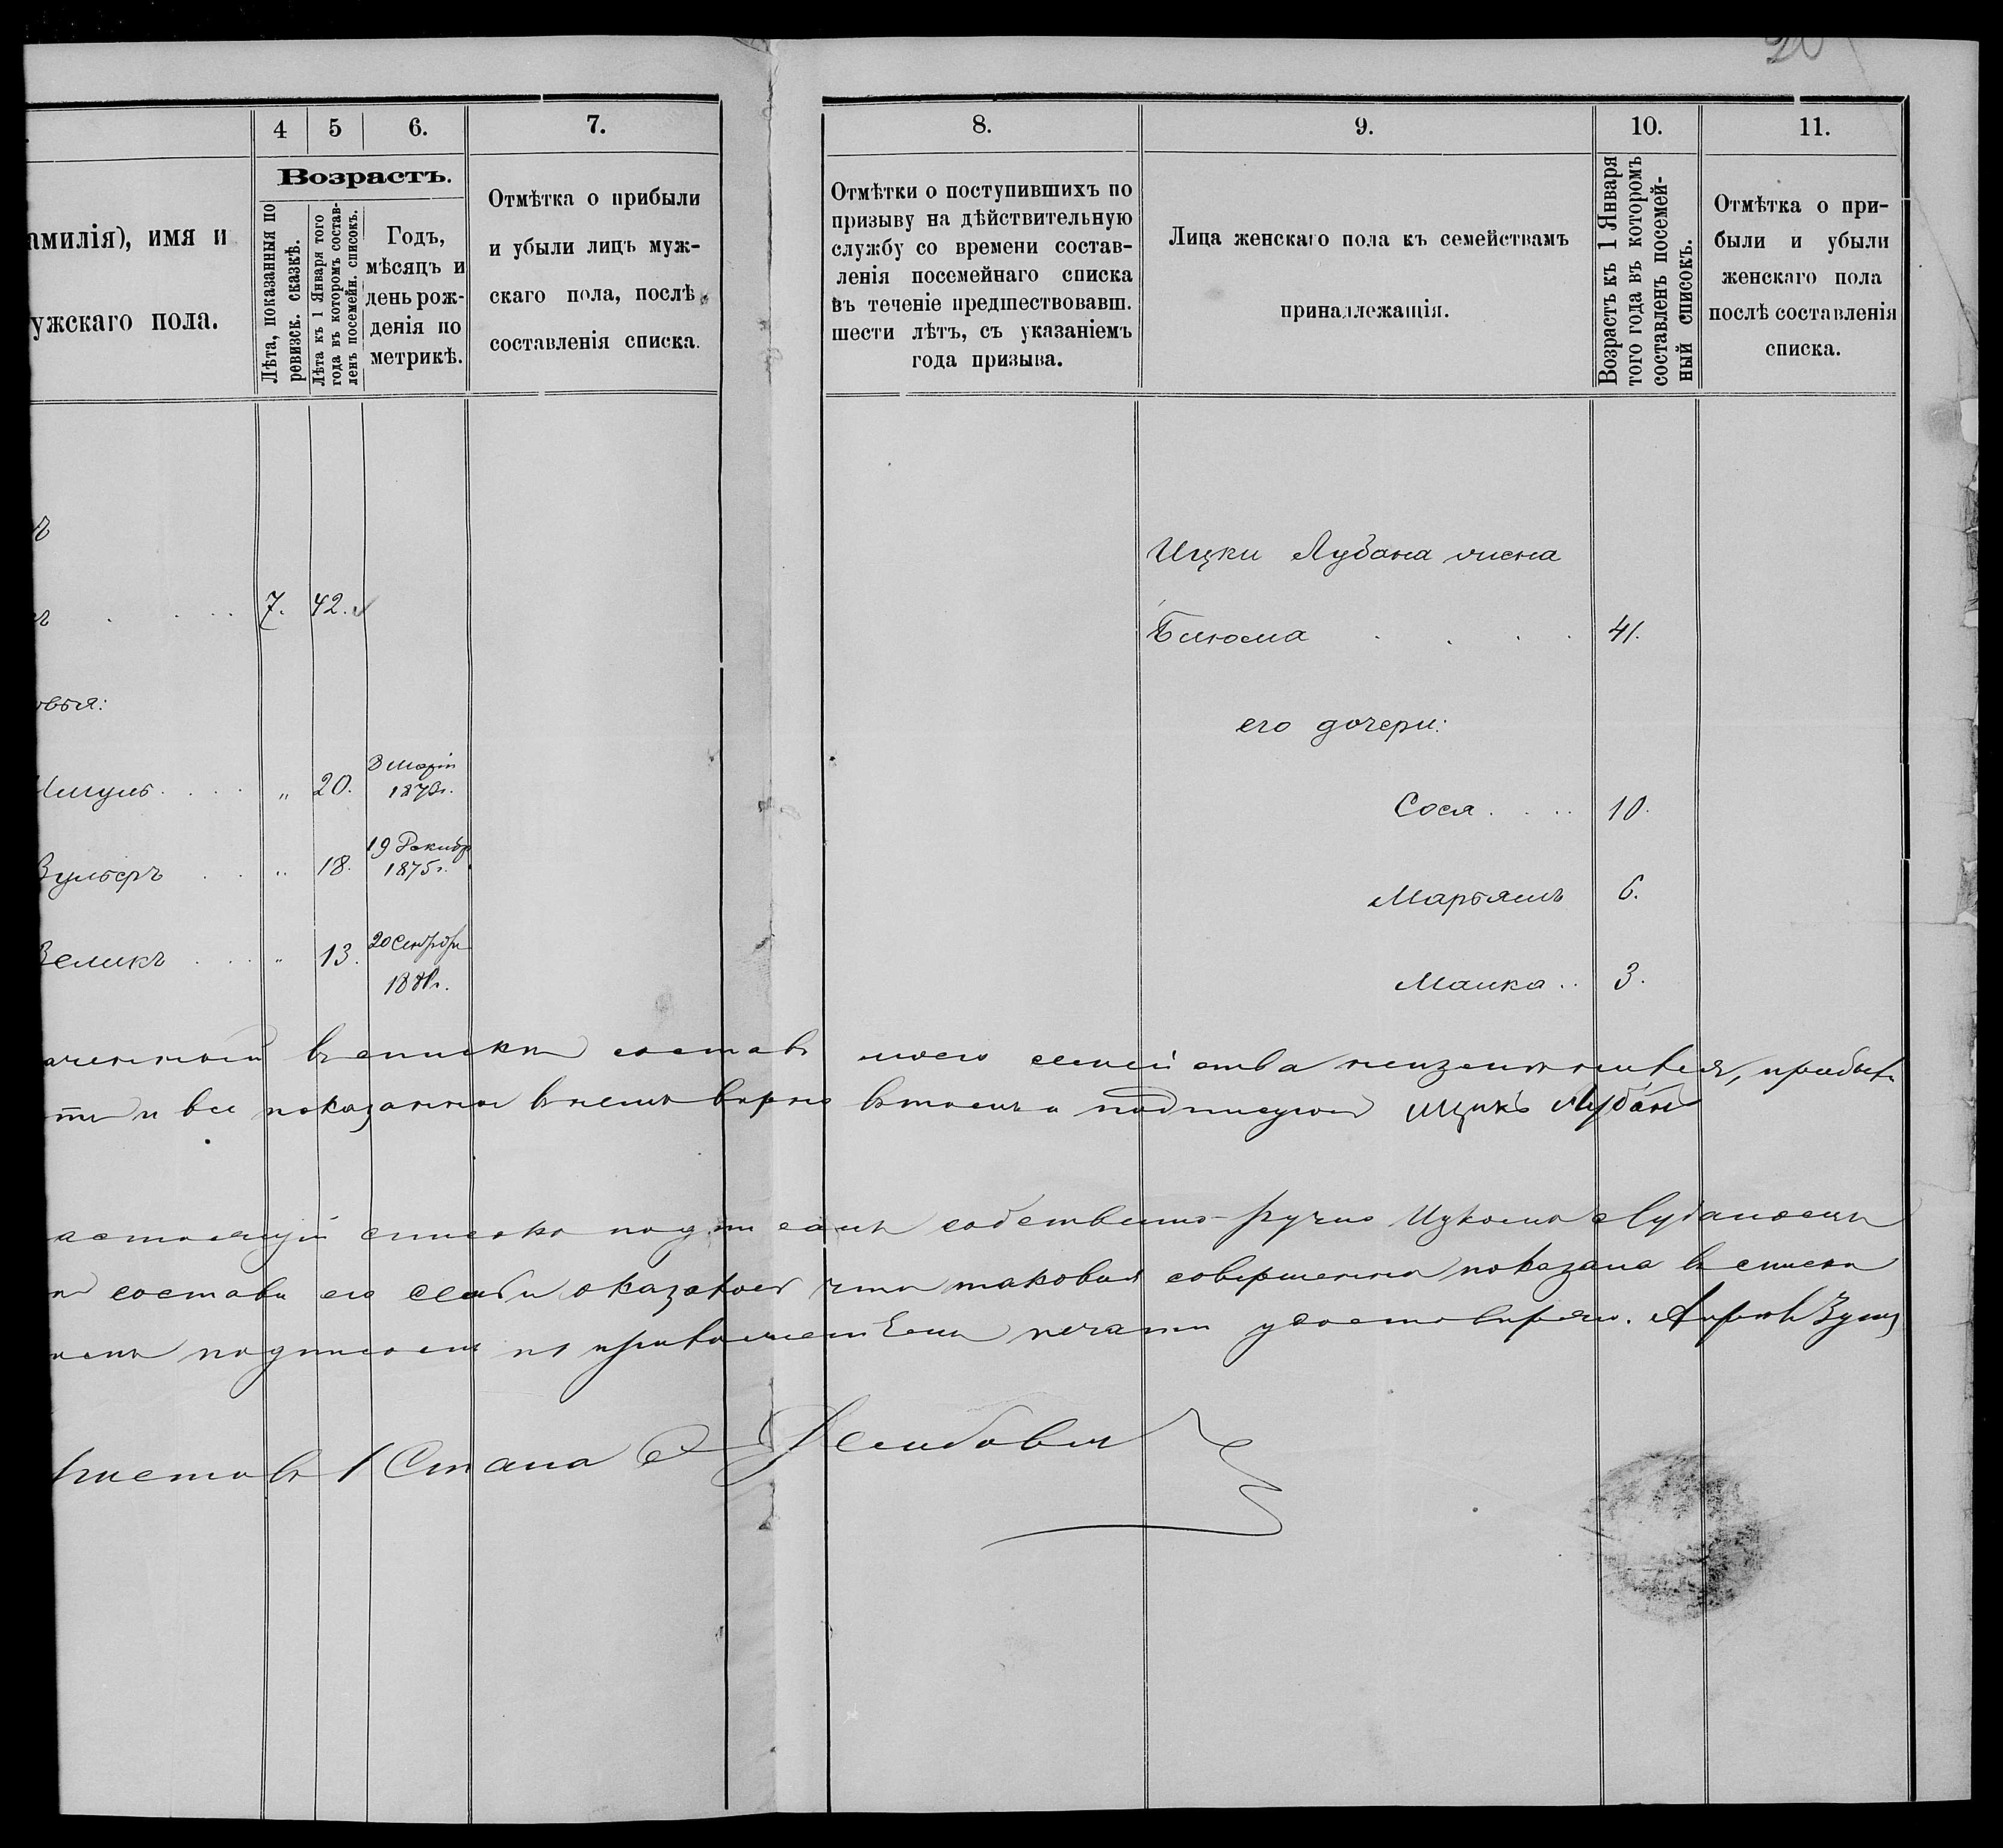 20
4 5 6. 7. 8. 9. 10. 11.
амилія), имя и
ужскаго пола.
Возрастъ.
Лѣта, показанныя по
ревизск. сказкѣ.
Лѣта къ 1 Января того
года въ которомъ состав-
ленъ посемейн. списокъ.
Годъ,
мѣсяцъ и
день рож-
денія по
метрикѣ.
Отмѣтка о прибыли
и убыли лицъ муж-
скаго пола, послѣ
составленія списка.
Отмѣтки о поступившихъ по
призыву на дѣйствительную
службу со времени состав-
ленія посемейнаго списка
въ теченіе предшествовавш.
шести лѣтъ, съ указаніемъ
года призыва.
Лица женскаго пола къ семействамъ
принадлежащія.
Возрастъ къ 1 Января
того года въ которомъ
составленъ посемей-
ный списокъ.
Отмѣтка о при-
были и убыли
женскаго пола
послѣ составленія
списка.
ъ
7. 42.
овья:
20. 3
187 г.
Вульфъ 18. 19 Декабр
1875 г.
Зеликъ 13. 20
188 г.
Ицки Лубана жена
Блюма 41.
его дочери:
Сося 10.
Марьямъ 6.
Малка 3.
ъ списке составъ моего семейства неизменился,
и все показанное в немъ верно в томъ и подписуюсь Ицикъ Лубанъ
астоящій списокъ собственно-ручно Ицкомъ Лубаномъ
составъ его семьи оказалось что таковая совершенно показана в списке
подписомъ печати удостоверяю.
Приставъ 1 Стана